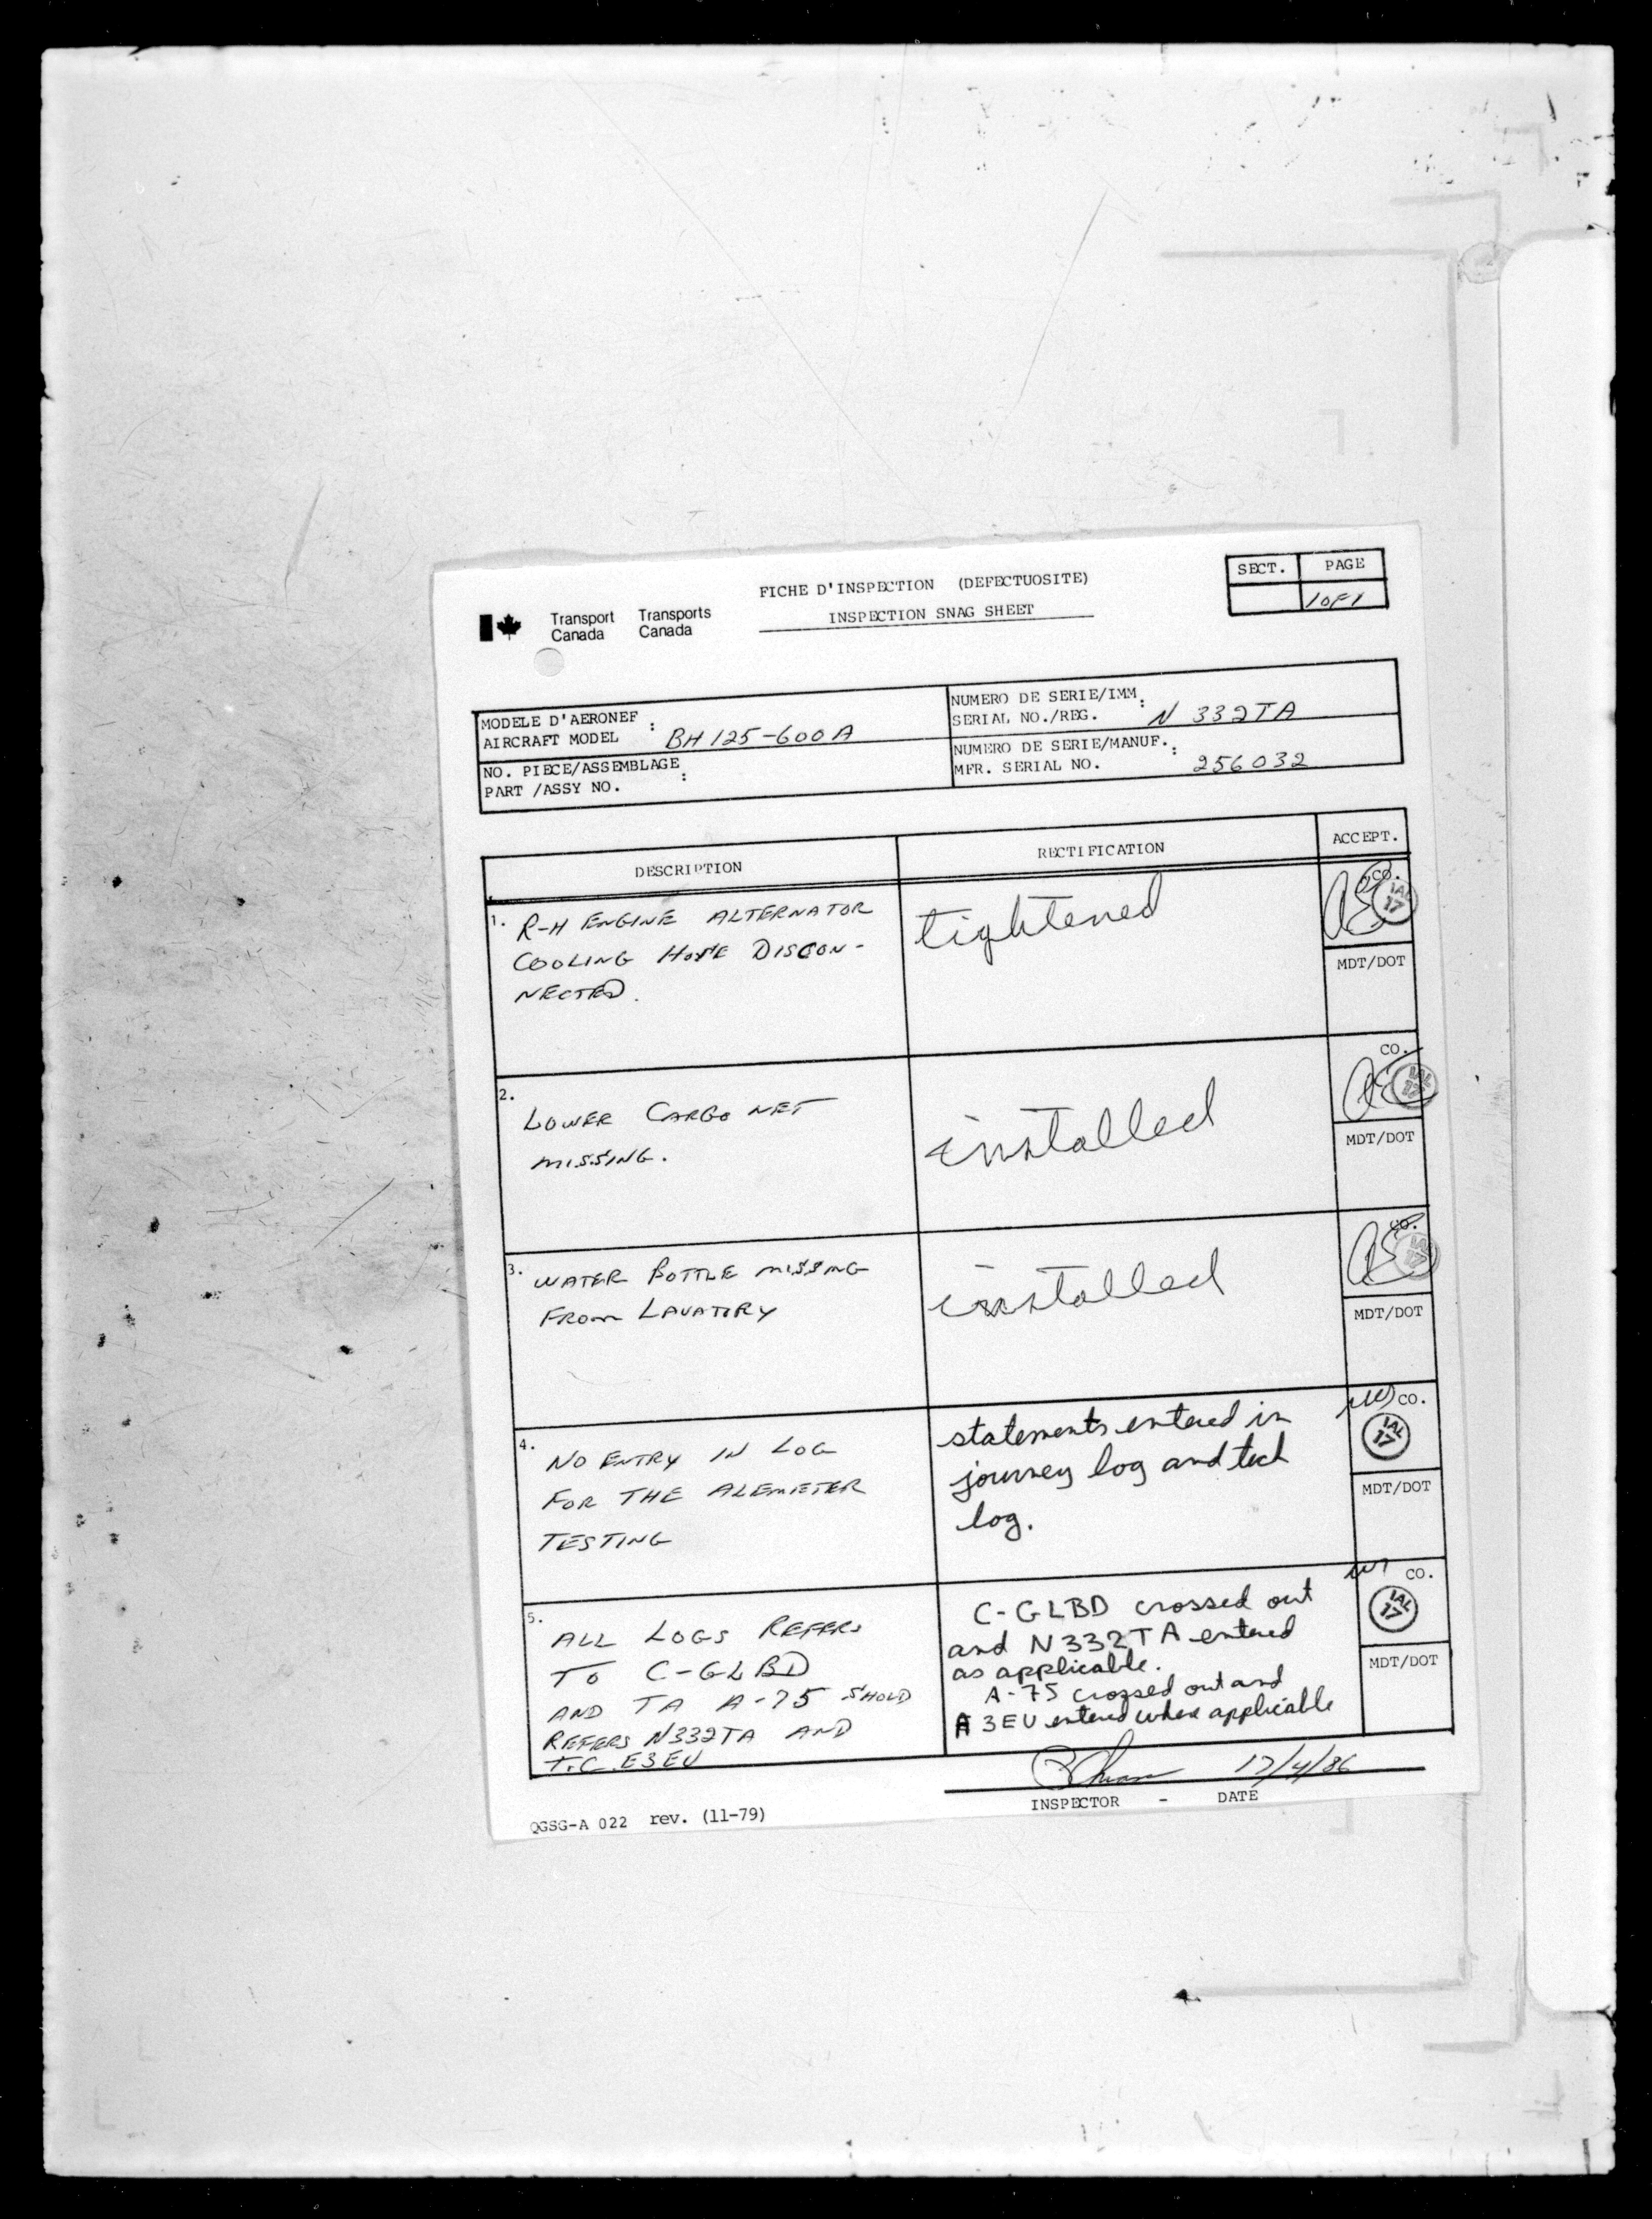 FICHE D'INSPECTION (DEFECTUOSITE)
INSPECTION SNAG SHEET
SECT. PAGE
1 OF 1
Transport Canada
Transports Canada
MODELE D'AERONEF :
AIRCRAFT MODEL BH 125-600A
NUMERO DE SERIE/IMM. :
SERIAL NO./REG. N 332TA
NO. PIECE/ASSEMBLAGE :
PART /ASSY NO.
NUMERO DE SERIE/MANUF. :
MFR. SERIAL NO. 256032
DESCRIPTION RECTIFICATION ACCEPT.
1. R-H ENGINE ALTERNATOR
COOLING HOSE DISCON-
NECTED.
tightened
CO.
IAL
17
MDT/DOT
2.
LOWER CARGO NET
MISSING.
installed
CO.
IAL
17
MDT/DOT
3. WATER BOTTLE MISSING
FROM LAVATORY
installed
CO.
IAL
17
MDT/DOT
4.
NO ENTRY IN LOG
FOR THE ALEMETER
TESTING
statements entered in
journey log and tech
log.
CO.
IAL
17
MDT/DOT
5.
ALL LOGS REFERS
TO C-GLBD
AND TA A-75 SHOLD
REFERS N332TA AND
T.C. E3EU
C-GLBD crossed out
and N332TA entered
as applicable.
A-75 crossed out and
A 3EU entered where applicable
CO.
IAL
17
MDT/DOT
17/4/86
INSPECTOR - DATE
QGSG-A 022 rev. (11-79)